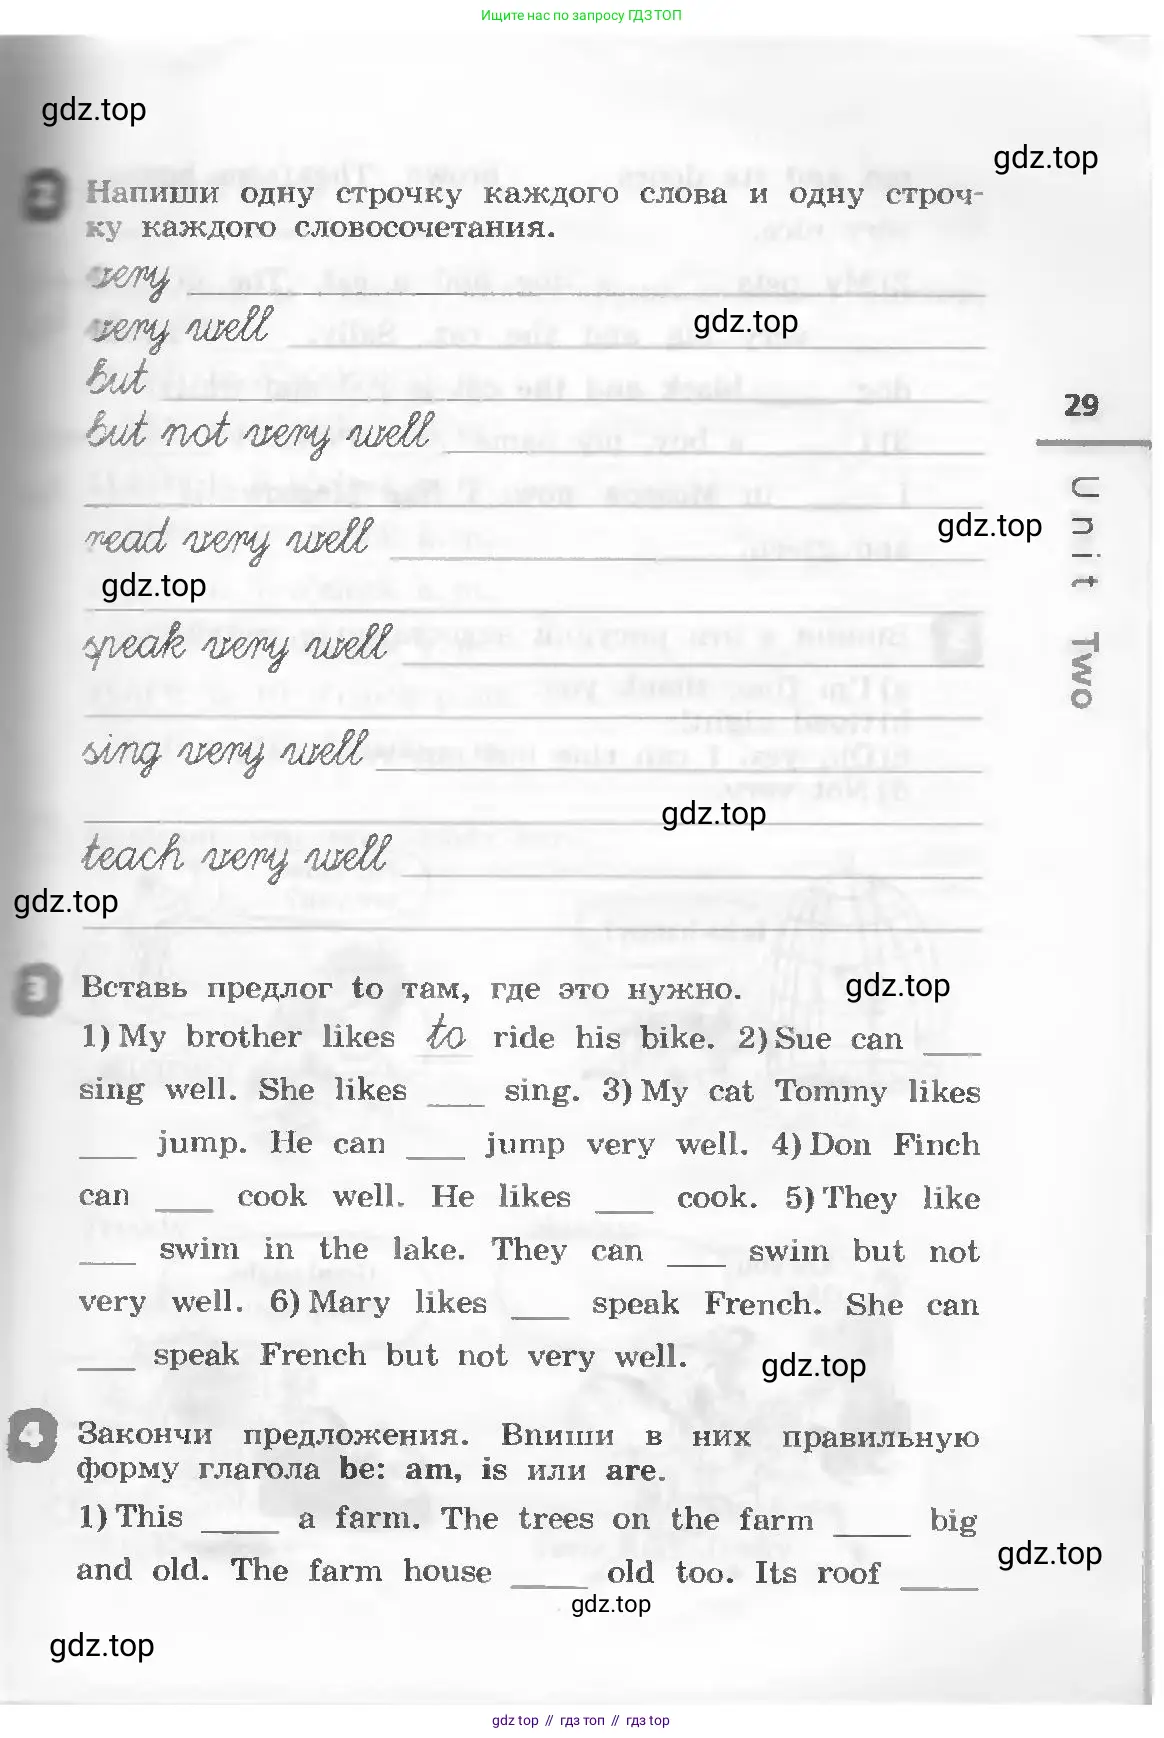 Ищите нас по запросу ГДЗ ТОП
gdz.top
gdz.top
2 Напиши одну строчку каждого слова и одну строч-
ку каждого словосочетания.
very
very well
gdz.top
but
29
but not very well
Unit Two
gdz.top
read very well
gdz.top
speak very well
sing very well
gdz.top
teach very well
gdz.top
3 Вставь предлог to там, где это нужно.
gdz.top
1) My brother likes to ride his bike. 2) Sue can ___
sing well. She likes ___ sing. 3) My cat Tommy likes
___ jump. He can ___ jump very well. 4) Don Finch
can ___ cook well. He likes ___ cook. 5) They like
___ swim in the lake. They can ___ swim but not
very well. 6) Mary likes ___ speak French. She can
___ speak French but not very well.
gdz.top
4 Закончи предложения. Впиши в них правильную
форму глагола be: am, is или are.
1) This ___ a farm. The trees on the farm ___ big
gdz.top
and old. The farm house ___ old too. Its roof ___
gdz.top
gdz.top
gdz top // гдз топ // гдз top